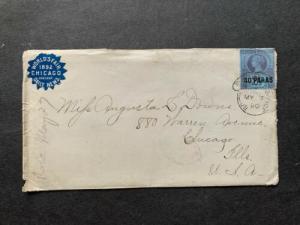 WORLD'S FAIR
1892
CHICAGO
40 PARAS
Miss Augusta L. Downs
880 Warren Avenue,
Chicago
Ills.
U.S.A.